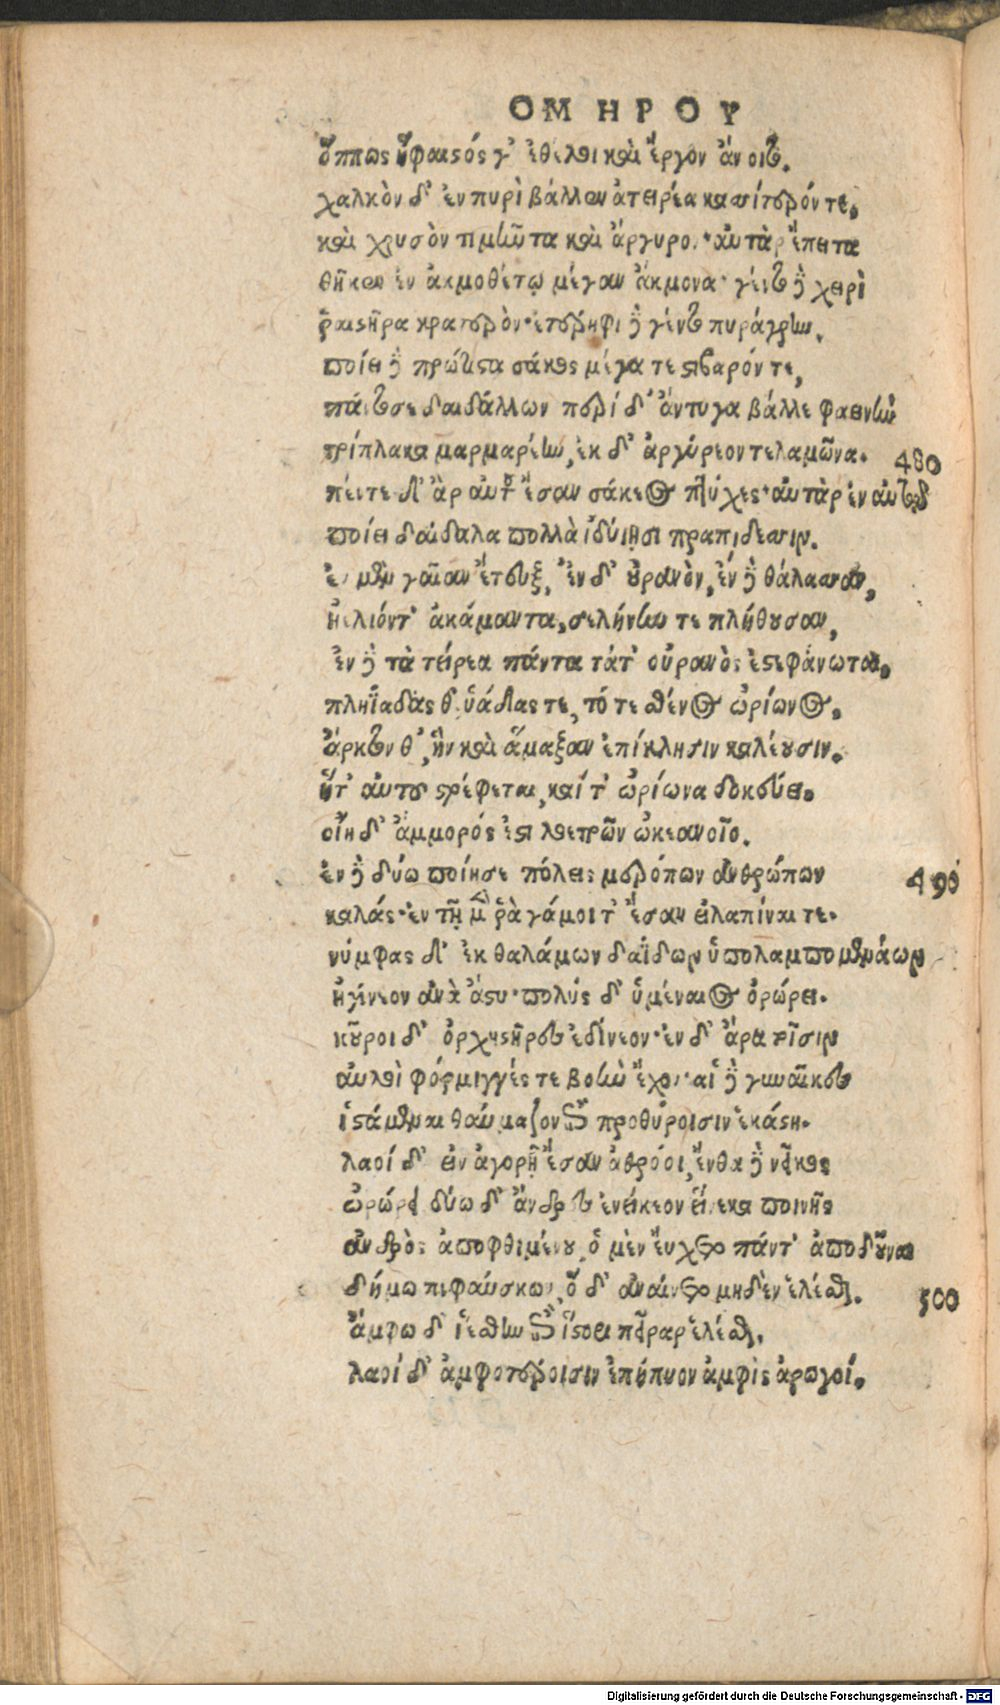 ΟΜΗΡΟΥ
ὅππως ἥφαιστός γ' ἐθέλοι καὶ ἔργον ἄνοιτο.
χαλκὸν δ' ἐν πυρὶ βάλλεν ἀτειρέα κασσίτερόν τε,
καὶ χρυσὸν τιμῆντα καὶ ἄργυρον· αὐτὰρ ἔπειτα
θῆκεν ἐν ἀκμοθέτῳ μέγαν ἄκμονα· γέντο δὲ χειρὶ
ῥαιστῆρα κρατερὸν· ἑτέρηφι δὲ γέντο πυράγρην.
ποίει δὲ πρώτιστα σάκος μέγα τε στιβαρόν τε,
πάντοσε δαιδάλλων περί δ' ἄντυγα βάλλε φαεινὴν
τρίπλακα μαρμαρέην, ἐκ δ' ἀργύρεον τελαμῶνα.
480
πέντε δ' ἂρ αὐτοῦ ἔσαν σάκεος πτύχες· αὐτὰρ ἐν αὐτῷ
ποίει δαίδαλα πολλὰ ἰδύιῃσι πραπίδεσσιν.
ἐν μὲν γαῖαν ἔτευξ', ἐν δ' οὐρανὸν, ἐν δὲ θάλασσαν,
ἠέλιόντ' ἀκάμαντα, σελήνην τε πλήθουσαν,
ἐν δὲ τὰ τείρεα πάντα τάτ' οὐρανὸς ἐστεφάνωται,
πληϊάδας θ' ὑάδας τε, τό τε σθένος ὠρίωνος,
ἄρκτον θ', ἣν καὶ ἅμαξαν ἐπίκλησιν καλέουσιν.
ἥτ' αὐτοῦ στρέφεται, καί τ' ὠρίωνα δοκεύει.
οἴη δ' ἄμμορός ἐστι λοετρῶν ὠκεανοῖο.
ἐν δὲ δύω ποίησε πόλεις μερόπων ἀνθρώπων
490
καλάς· ἐν τῇ μέν ῥὰ γάμοι τ' ἔσαν εἰλαπίναι τε.
νύμφας δ' ἐκ θαλάμων δαΐδων ὑπολαμπομενάων
ἠγίνεον ἀνὰ ἄστυ· πολύς δ' ὑμέναιος ὀρώρει.
κοῦροι δ' ὀρχηστῆρες ἐδίνεον· ἐν δ' ἄρα τοῖσιν
αὐλοὶ φόρμιγγές τε βοὴν ἔχον· αἱ δὲ γυναῖκες
ἱστάμεναι θαύμαζον ἐπὶ προθύροισιν ἑκάστη.
λαοί δ' εἰν ἀγορῇ ἔσαν ἀθρόοι, ἔνθα δὲ νεῖκος
ὠρώρει δύω δ' ἄνδρες ἐνείκεον εἵνεκα ποινῆς
ἀνδρὸς ἀποφθιμένου, ὁ μὲν ἔυχετο πάντ' ἀποδοῦναι
δήμω πιφαύσκων, ὃ δ' ἀναίνετο μηδὲν ἑλέσθαι.
500
ἄμφω δ' ἱέσθην ἐπὶ ἵστορι πεῖραρ ἑλέσθαι.
λαοί δ' ἀμφοτέροισιν ἐπήπυον ἀμφὶς ἀρωγοί.
Digitalisierung gefördert durch die Deutsche Forschungsgemeinschaft - DFG